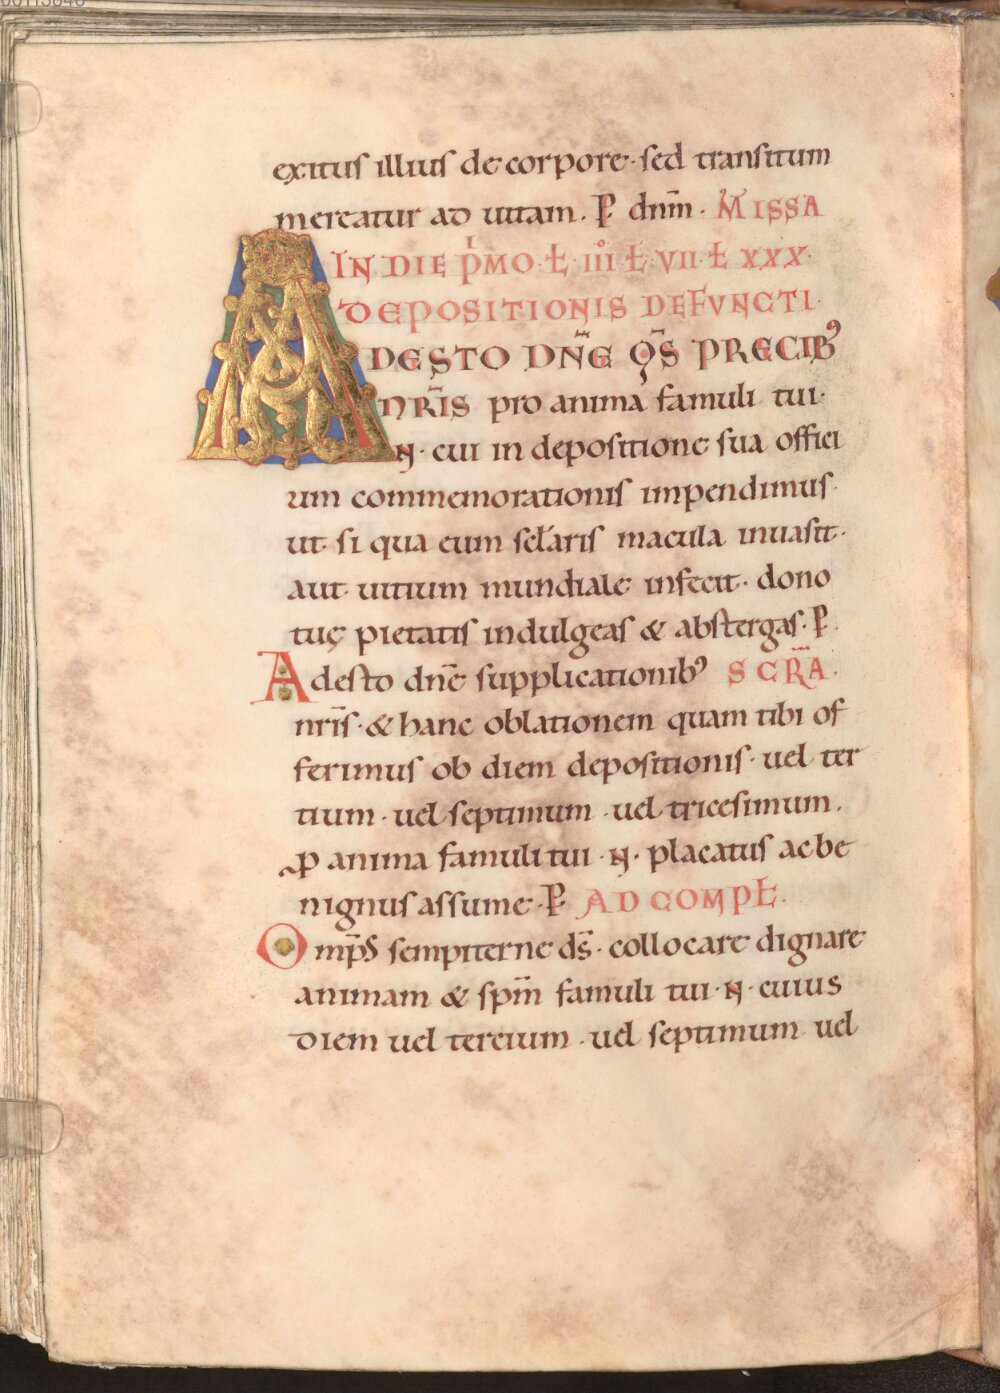 exitus illius de corpore · sed transitum
mereatur ad uitam. P̄ dnm̄. MISSA
IN DIE pͥMO · Ł · iiiͦ · Ł · VII · Ł XXX ·
DEPOSITIONIS DEFVNCTI ·
ADESTO DÑE QS̄ PRECIBꝰ
NR̄IS pro anima famuli tui ·
N · cui in depositione sua offici
um commemorationis impendimus ·
ut · si qua eum scłaris macula inuasit ·
aut uitium mundiale infecit · dono
tuę pietatis indulgeas & abstergas · P̄
Adesto dnē supplicationibꝰ SCR̄A ·
nr̄is · & hanc oblationem quam tibi of
ferimus ob diem depositionis · uel ter
tium · uel septimum · uel tricesimum .
ꝓ anima famuli tui · N · placatus ac be
nignus assume · P̄ AD COMPŁ ·
Omp̄S sempiterne ds̄ · collocare dignare
animam & spm̄ famuli tui · N · cuius
diem uel tercium · uel septimum uel